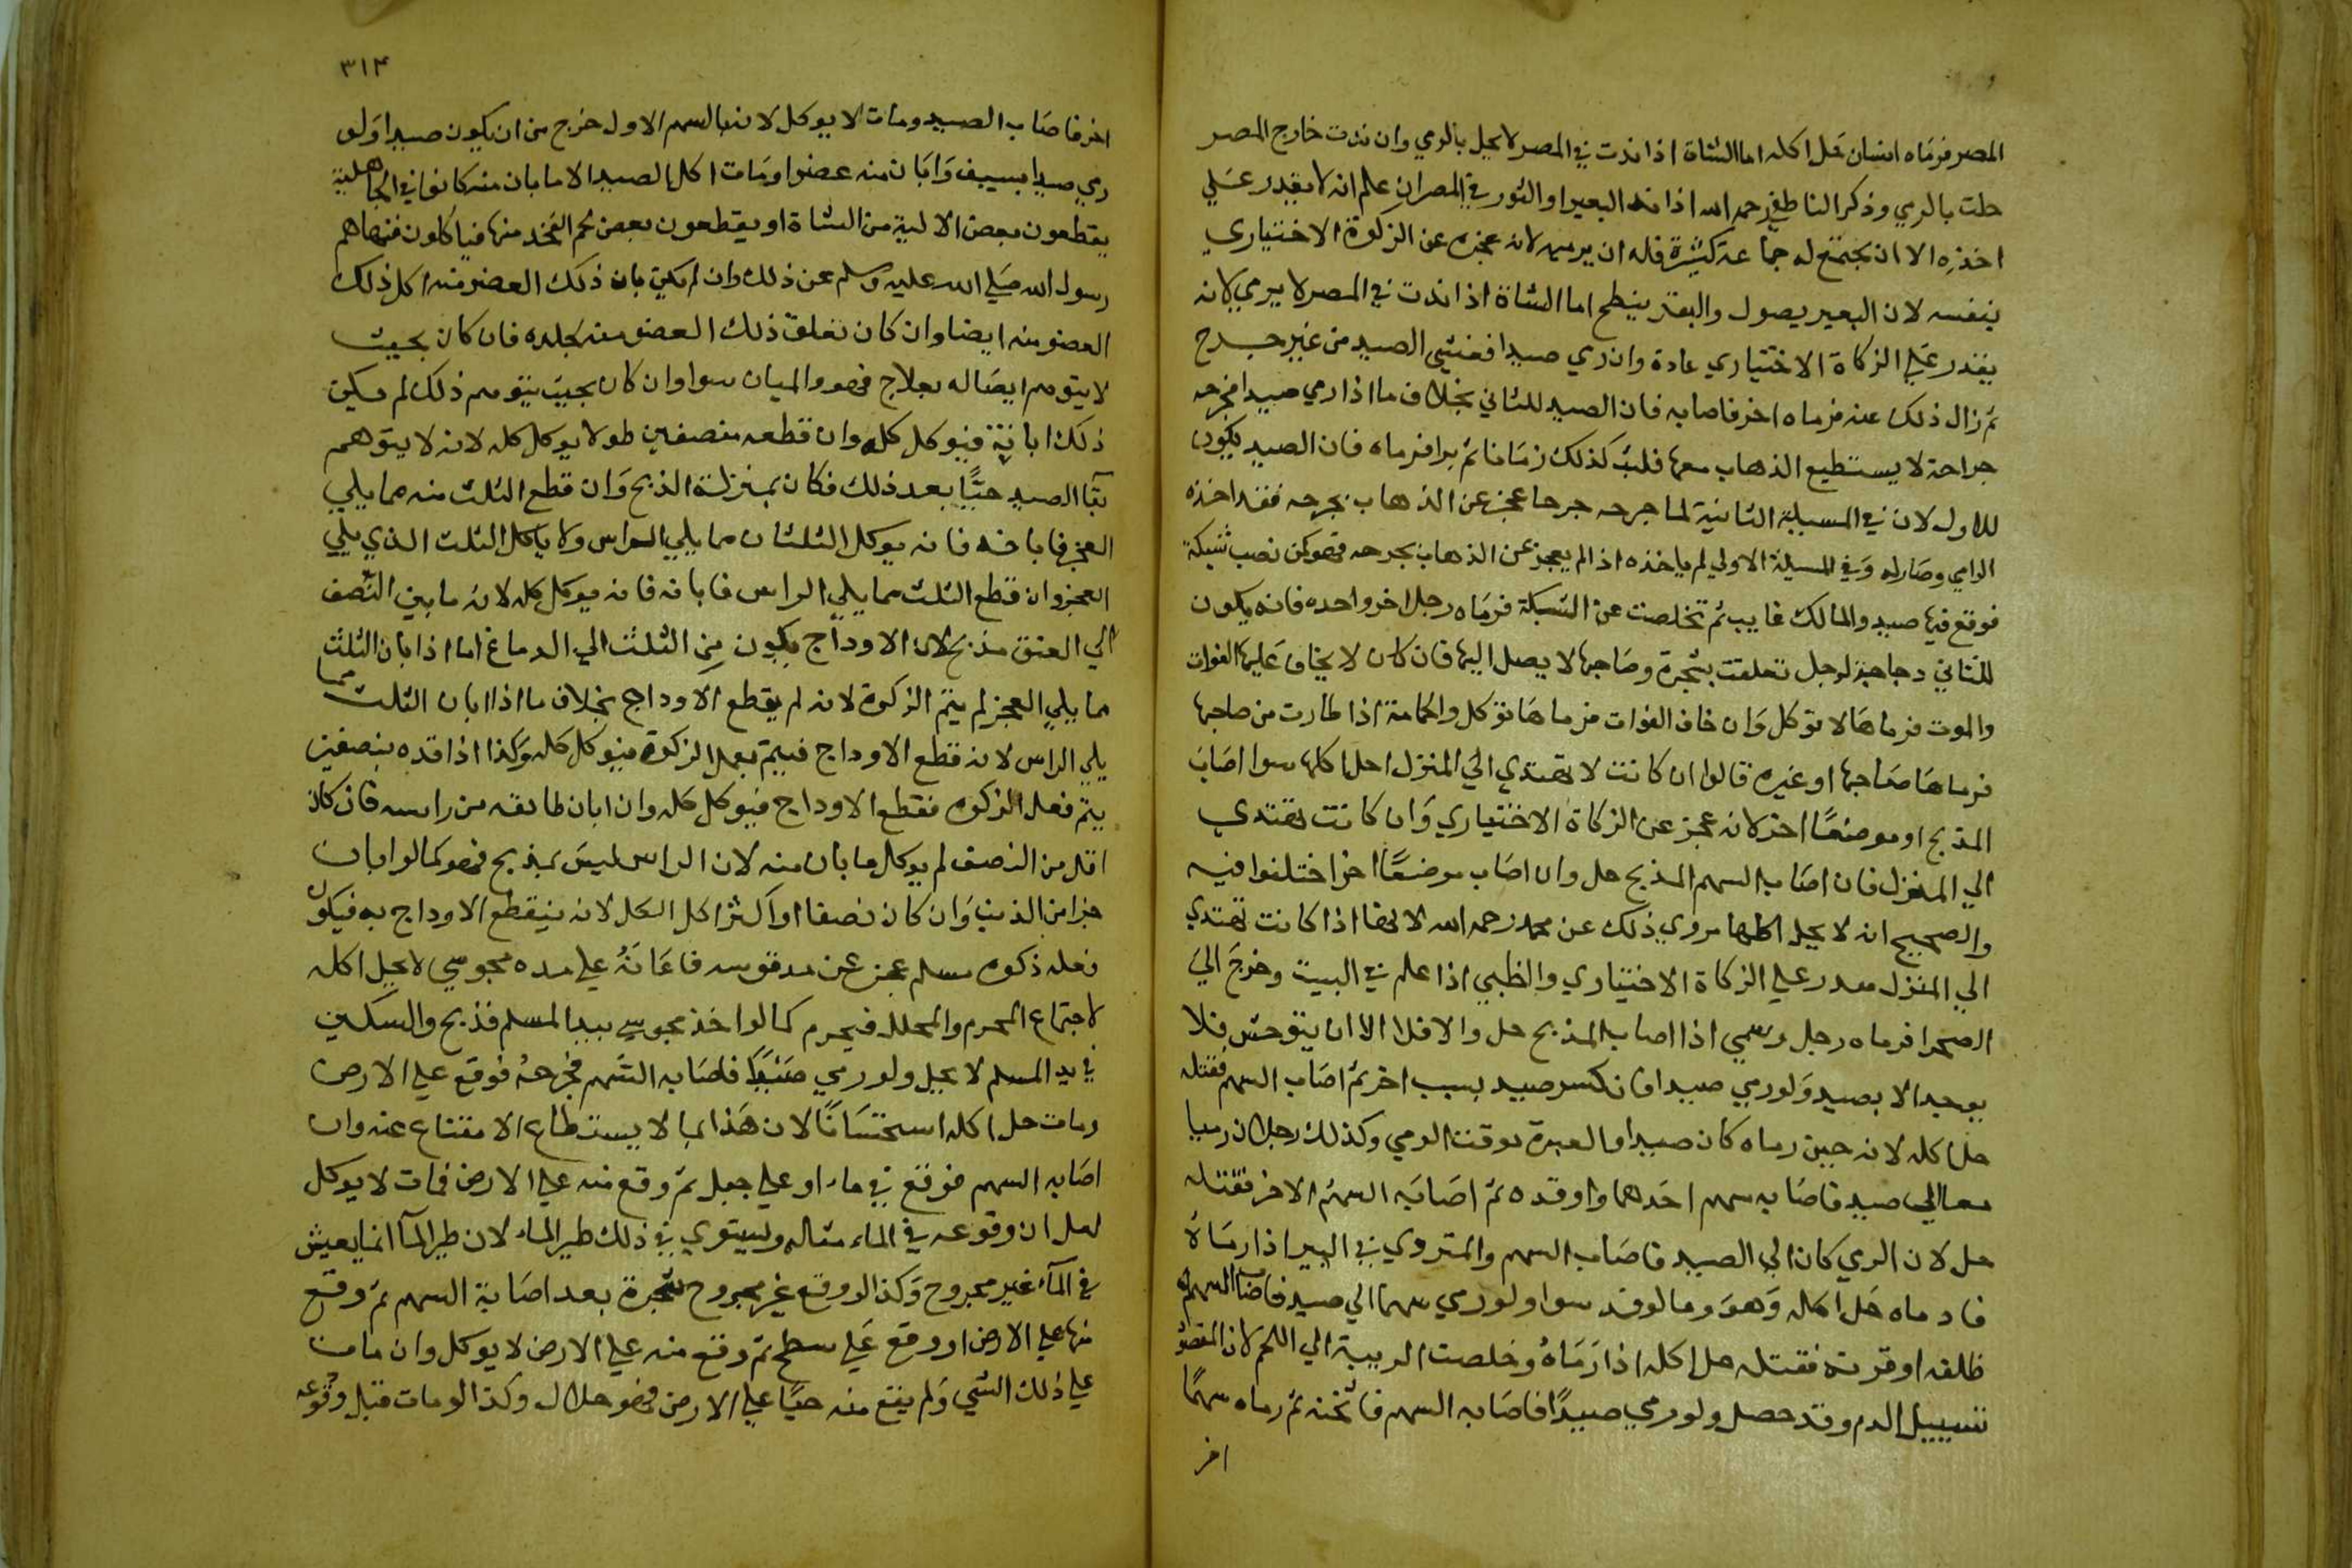 المصر فرماه انسان حل اكله اما الشاة اذا ندت في المصر لا يحل بالرمي وان ندت خارج المصر
حلت بالرمي وذكر الناطفي رحمه الله اذا ند البعير او الثور في المصر ان علم انه لا يقدر علي
اخذه الا ان يجتمع له جماعة كثيرة فله ان يرميه لانه عجز عن الزكوة الاختياري
بنفسه لان البعير يصول والبقر ينطح اما الشاة اذا ندت في المصر لا يرمي لانه
يقدر علي الزكاة الاختياري عادة وان رمي صيدا فغشي الصيد من غير جرح
ثم زال ذلك عنه فرماه اخر فاصابه فان الصيد للثاني بخلاف ما اذا رمي صيدا فجرحه
جراحة لا يستطيع الذهاب معها فلبث كذلك زمانا ثم برا فرماه فان الصيد يكون
للاول لان في المسيلة الثانية لما جرحه جرحا عجز عن الذهاب بجرحه فقد اخذه
الرامي وصار له وفي المسيلة الاولي لم ياخذه اذا لم يعجز عن الذهاب بجرحه فهو كمن نصب شبكة
فوقع فيها صيد والمالك غايب ثم تخلصت عن الشبكة فرماه رجل اخر واحده فانه يكون
للثاني دجاجة لرجل تعلقت بشجرة وصاحبها لا يصل اليها فان كان لا يخاف عليها الفوات
والموت فرماها لا توكل وان خاف الفوات فرماها توكل والحمامة اذا طارت من صاحبها
فرماها صاحبها او غيره قالوا ان كانت لا تهتدي الي المنزل احل اكلها سوا اصاب
المذبح او موضعًا اخر لانه عجز عن الزكاة الاختياري وان كانت تهتدي
الي المنزل فان اصاب السهم المذبح حل وان اصاب موضعًا اخر اختلفوا فيه
والصحيح انه لا يحل اكلها مروي ذلك عن محمد رحمه الله لانها اذا كانت تهتدي
الي المنزل يقدر علي الزكاة الاختياري والظبي اذا علم في البيت وخرج الي
الصحرا فرماه رجل وسمي اذا اصاب المذبح حل والا فلا الا ان يتوحش فلا
يوخد الا بصيد ولو رمي صيدا فانكسر صيد بسبب اخر ثم اصاب السهم فقتله
حل اكله لانه حين رماه كان صيدا والعبرة لوقت الرمي وكذلك رجلان رميا
معا الي صيد فاصابه سهم احدهما واوقده ثم اصابه السهم الاخر فقتله
حل لان الرمي كان الي الصيد فاصاب السهم والمتردي في البير اذا رماه
فادماه حل اكله وهو وما لو ند سوا ولو رمي سهما الي صيد فاصاب السهم
ظلفه او قرنه فقتله حل اكله اذا رماه وخلصت الرمية الي اللحم لان المقصود
تسييل الدم وقد حصل ولو رمي صيدًا فاصابه السهم فاثخنه ثم رماه سهمًا
اخر
٣١٤
اخر فاصاب الصيد ومات لا يوكل لانه بالسهم الاول خرج من ان يكون صيدا ولو
رمي صيدا بسيف وابان منه عضوا ومات اكل الصيد الا ما بان منه كانوا في الجاهلية
يقطعون بعض الالية من الشاة او يقطعون بعض لحم الفخذ منها فياكلون فنهاهم
رسول الله صلي الله عليه وسلم عن ذلك وان لم يكن بان ذلك العضو منه اكل ذلك
العضو منه ايضا وان كان تعلق ذلك العضو منه بجلده فان كان بحيث
لا يتوهم ايصاله بعلاج فهو والمبان سوا وان كان بحيث يتوهم ذلك لم يكن
ذلك ابانية فيوكل كله وان قطعه منصفين طولا يوكل كله لانه لا يتوهم
بقا الصيد حيًا بعد ذلك فكان بمنزلة الذبح وان قطع الثلث منه مما يلي
العجز فابانه فانه يوكل الثلثان مما يلي الراس ولا ياكل الثلث الذي يلي
العجز وان قطع الثلث مما يلي الراس فابانه فانه يوكل كله لانه ما بين النصف
الي العنق مذبح لان الاوداج يكون من الثلث الي الدماغ اما اذا بان الثلث
مما يلي العجز لم يتم الزكوة لانه لم يقطع الاوداج بخلاف ما اذا ابان الثلث مما
يلي الراس لانه قطع الاوداج فيتم بعد الزكوة فيوكل كله وكذا اذا قده بنصفين
يتم فعل الزكوه فقطع الاوداج فيوكل كله وان ابان طايفه من راسه فان كان
اقل من النصف لم يوكل ما بان منه لان الراس ليس بمذبح فهو كما لو ابان
جزا من الذنب وان كان نصفا او اكثر اكل الكل لانه ينقطع الاوداج به فيكون
فعله ذكوه مسلم عجز عن مد قوسه فاعانه علي مده مجوسي لا يحل اكله
لاجتماع المحرم والمحلل فيحرم كما لو اخذ مجوسي بيد المسلم فذبح والسكين
في يد المسلم لا يحل ولو رمي صيدًا فاصابه السهم فجرحه فوقع علي الارض
ومات حل اكله استحسانًا لان هذا مما لا يستطاع الامتناع عنه وان
اصابه السهم فوقع في ماء او علي جبل ثم وقع منه علي الارض فمات لا يوكل
لعل ان وقوعه في الماء قتاله ويستوي في ذلك طير الماء لان طير المآ انما يعيش
في المآء غير مجروح وكذا لو وقع غير مجروح شجرة بعد اصابة السهم ثم وقع
منها علي الارض او وقع علي سطح ثم وقع منه علي الارض لا يوكل وان مات
علي ذلك الشي ولم يقع منه حيًا علي الارض فهو حلال وكذا لو مات قبل وقوعه